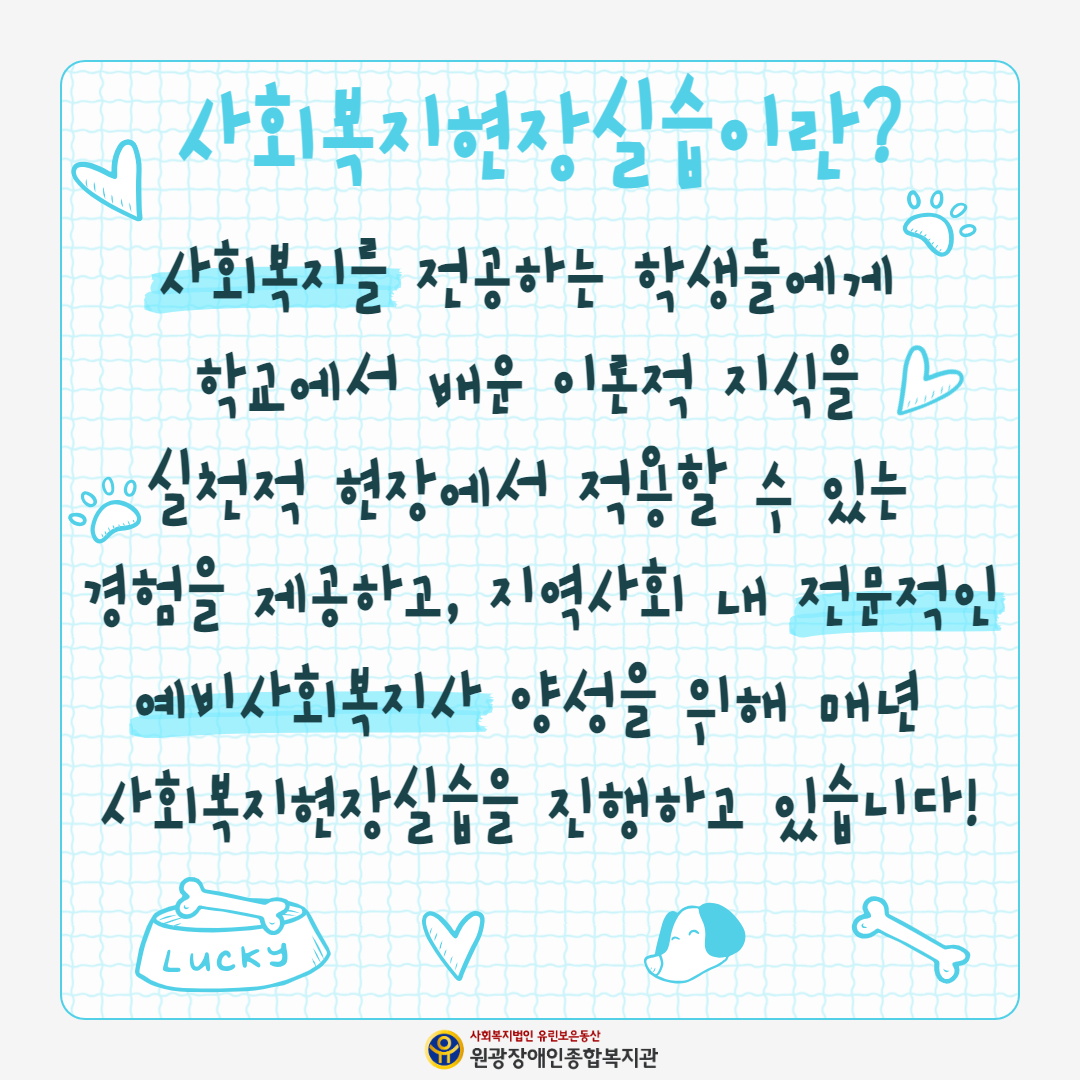 사회복지현장실습이란?
사회복지를 전공하는 학생들에게
학교에서 배운 이론적 지식을
실천적 현장에서 적용할 수 있는
경험을 제공하고, 지역사회 내 전문적인
예비사회복지사 양성을 위해 매년
사회복지현장실습을 진행하고 있습니다!
LUCKY
사회복지법인 유린보은동산
원광장애인종합복지관